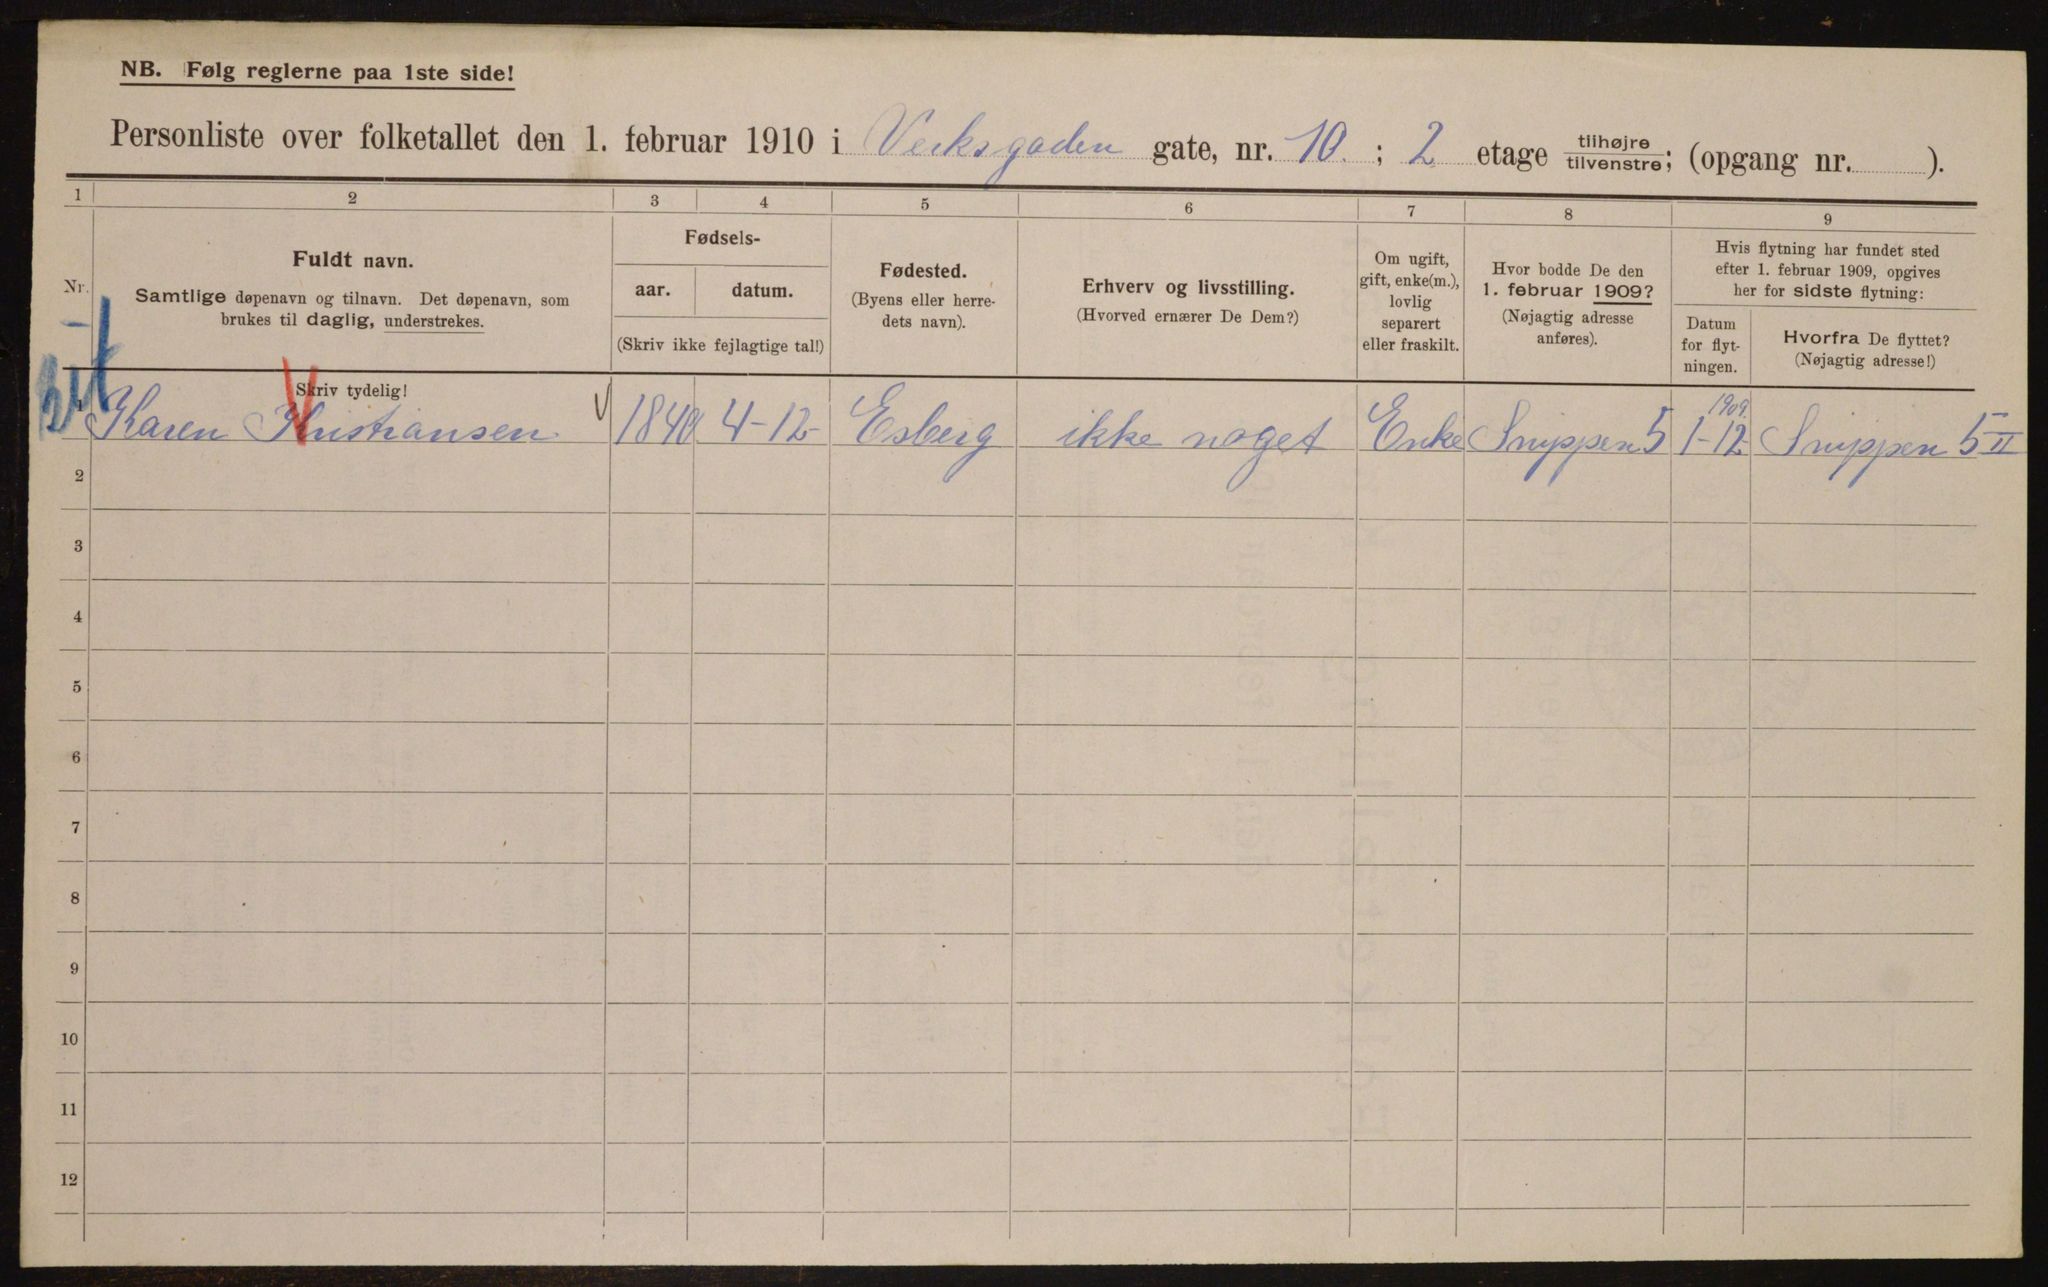 NB. Følg reglerne paa 1ste side!
Personliste over folketallet den 1. februar 1910 i Verksgaden gate, nr. 10. ; 2 etage tilhøjre/tilvenstre; (opgang nr. ).
1 2 3 4 5 6 7 8 9
Nr.
Fuldt navn.
Samtlige døpenavn og tilnavn. Det døpenavn, som
brukes til daglig, understrekes.
Skriv tydelig!
Fødsels-
aar. datum.
(Skriv ikke fejlagtige tal!)
Fødested.
(Byens eller herre-
dets navn).
Erhverv og livsstilling.
(Hvorved ernærer De Dem?)
Om ugift,
gift, enke(m.),
lovlig
separert
eller fraskilt.
Hvor bodde De den
1. februar 1909?
(Nøjagtig adresse
anføres).
Hvis flytning har fundet sted
efter 1. februar 1909, opgives
her for sidste flytning:
Datum
for flyt-
ningen.
Hvorfra De flyttet?
(Nøjagtig adresse!)
1 Karen Kristiansen 1840 4-12- Esberg ikke noget Enke Snippen 5 1909. 1-12- Snippen 5 II
2
3
4
5
6
7
8
9
10
11
12